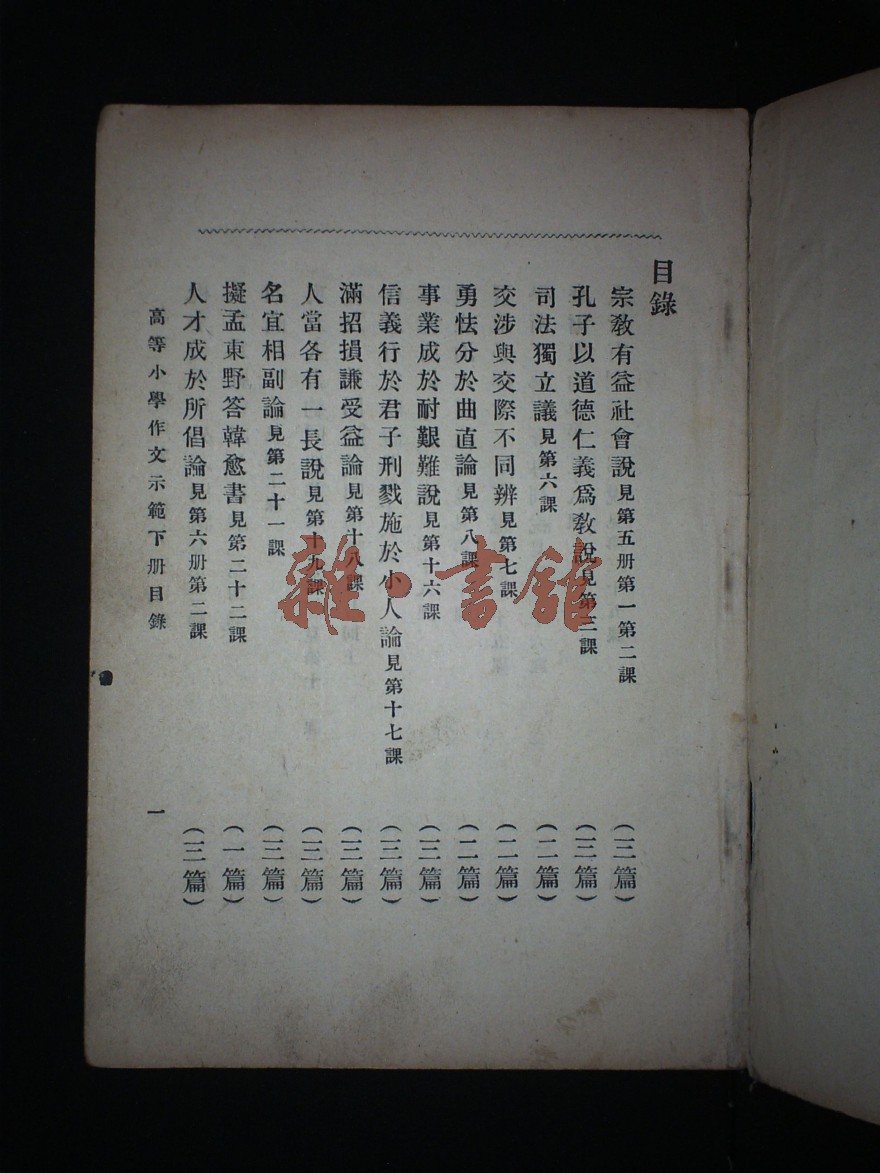 目錄
宗教有益社會說見第五册第一第二課（三篇）
孔子以道德仁義爲教說見第三課（三篇）
司法獨立議見第六課（二篇）
交涉與交際不同辨見第七課（二篇）
勇怯分於曲直論見第八課（二篇）
事業成於耐艱難說見第十六課（三篇）
信義行於君子刑戮施於小人論見第十七課（三篇）
滿招損謙受益論見第十八課（三篇）
人當各有一長說見第十九課（三篇）
名宜相副論見第二十一課（三篇）
擬孟東野答韓愈書見第二十二課（一篇）
人才成於所倡論見第六册第二課（三篇）
高等小學作文示範下册目錄 一
雜·書館